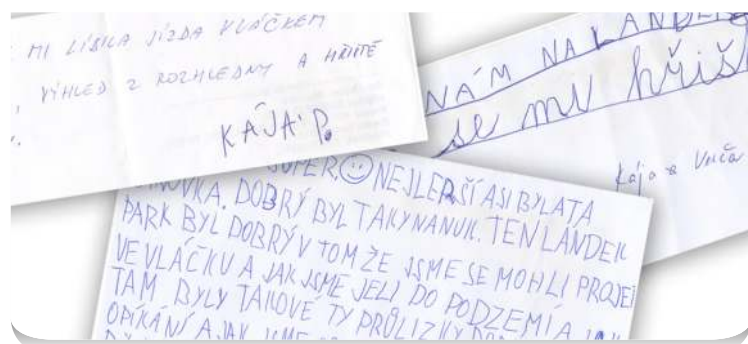 MI LÍBILA JÍZDA VLÁČKEM
, VÝHLED Z ROZHLEDNY A HŘIŠTĚ
KÁJA P.
NÁM NA
se mu hřiš
Kája a
SUPER☺NEJLEPŠÍ ASI BYLA TA
DOBRÝ BYL TAKY NANUK. TEN LANDEK
PARK BYL DOBRÝ V TOM ŽE JSME SE MOHLI PROJET
VE VLÁČKU A JAK JSME JELI DO PODZEMÍ A
TAM BYLY TAKOVÉ TY PRŮLIZKY
OPÍKÁNÍ A JAK JSME